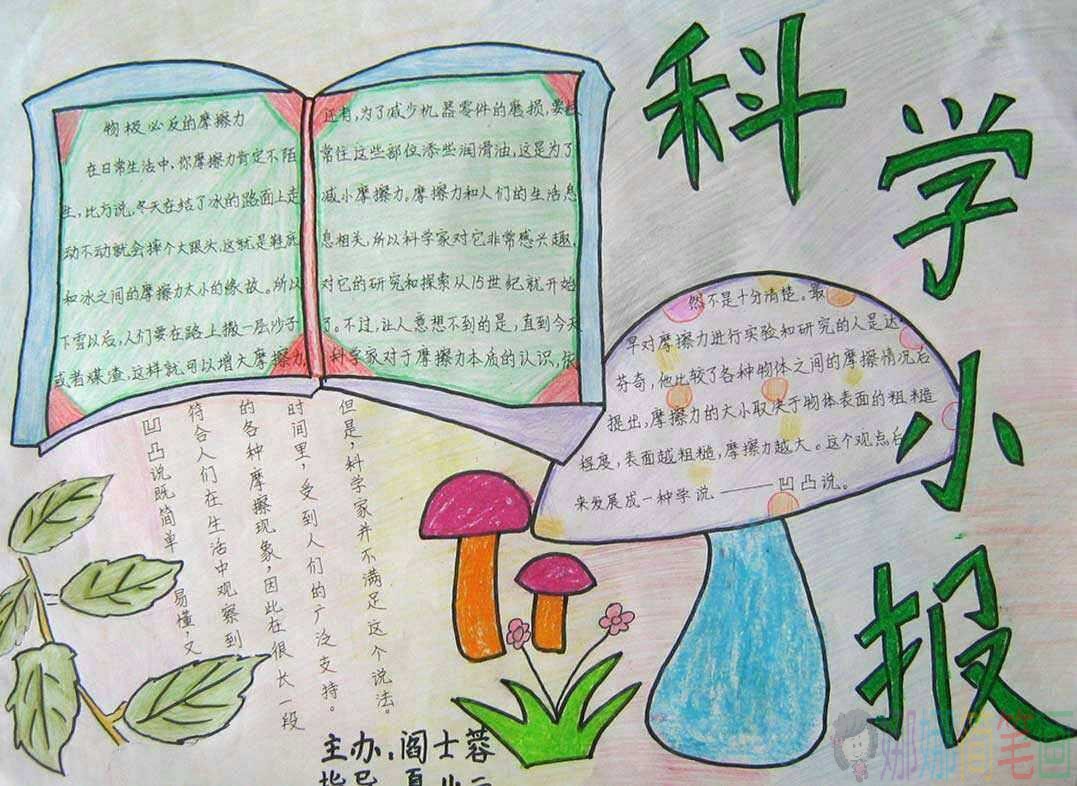 科学小报
物极必反的摩擦力
在日常生活中,你摩擦力肯定不陌
生,比方说,冬天在结了冰的路面上走
动不动就会摔个大跟头,这就是鞋底
和冰之间的摩擦力太小的缘故。所以
下雪以后,人们要在路上撒一层沙子
或者煤渣,这样就可以增大摩擦力
还有,为了减少机器零件的磨损,要经
常往这些部位添些润滑油,这是为了
减小摩擦力。摩擦力和人们的生活息
息相关,所以科学家对它非常感兴趣,
对它的研究和探索从15世纪就开始
了。不过,让人意想不到的是,直到今天
科学家对于摩擦力本质的认识,依
然不是十分清楚。最
早对摩擦力进行实验和研究的人是达
芬奇,他比较了各种物体之间的摩擦情况后
提出,摩擦力的大小取决于物体表面的粗糙
程度,表面越粗糙,摩擦力越大。这个观点后
来发展成一种学说——凹凸说。
凹凸说既简单、易懂,又
符合人们在生活中观察到
的各种摩擦现象,因此在很长一段
时间里,受到人们的广泛支持。
但是,科学家并不满足这个说法。
主办:阎士蓉
娜娜简笔画